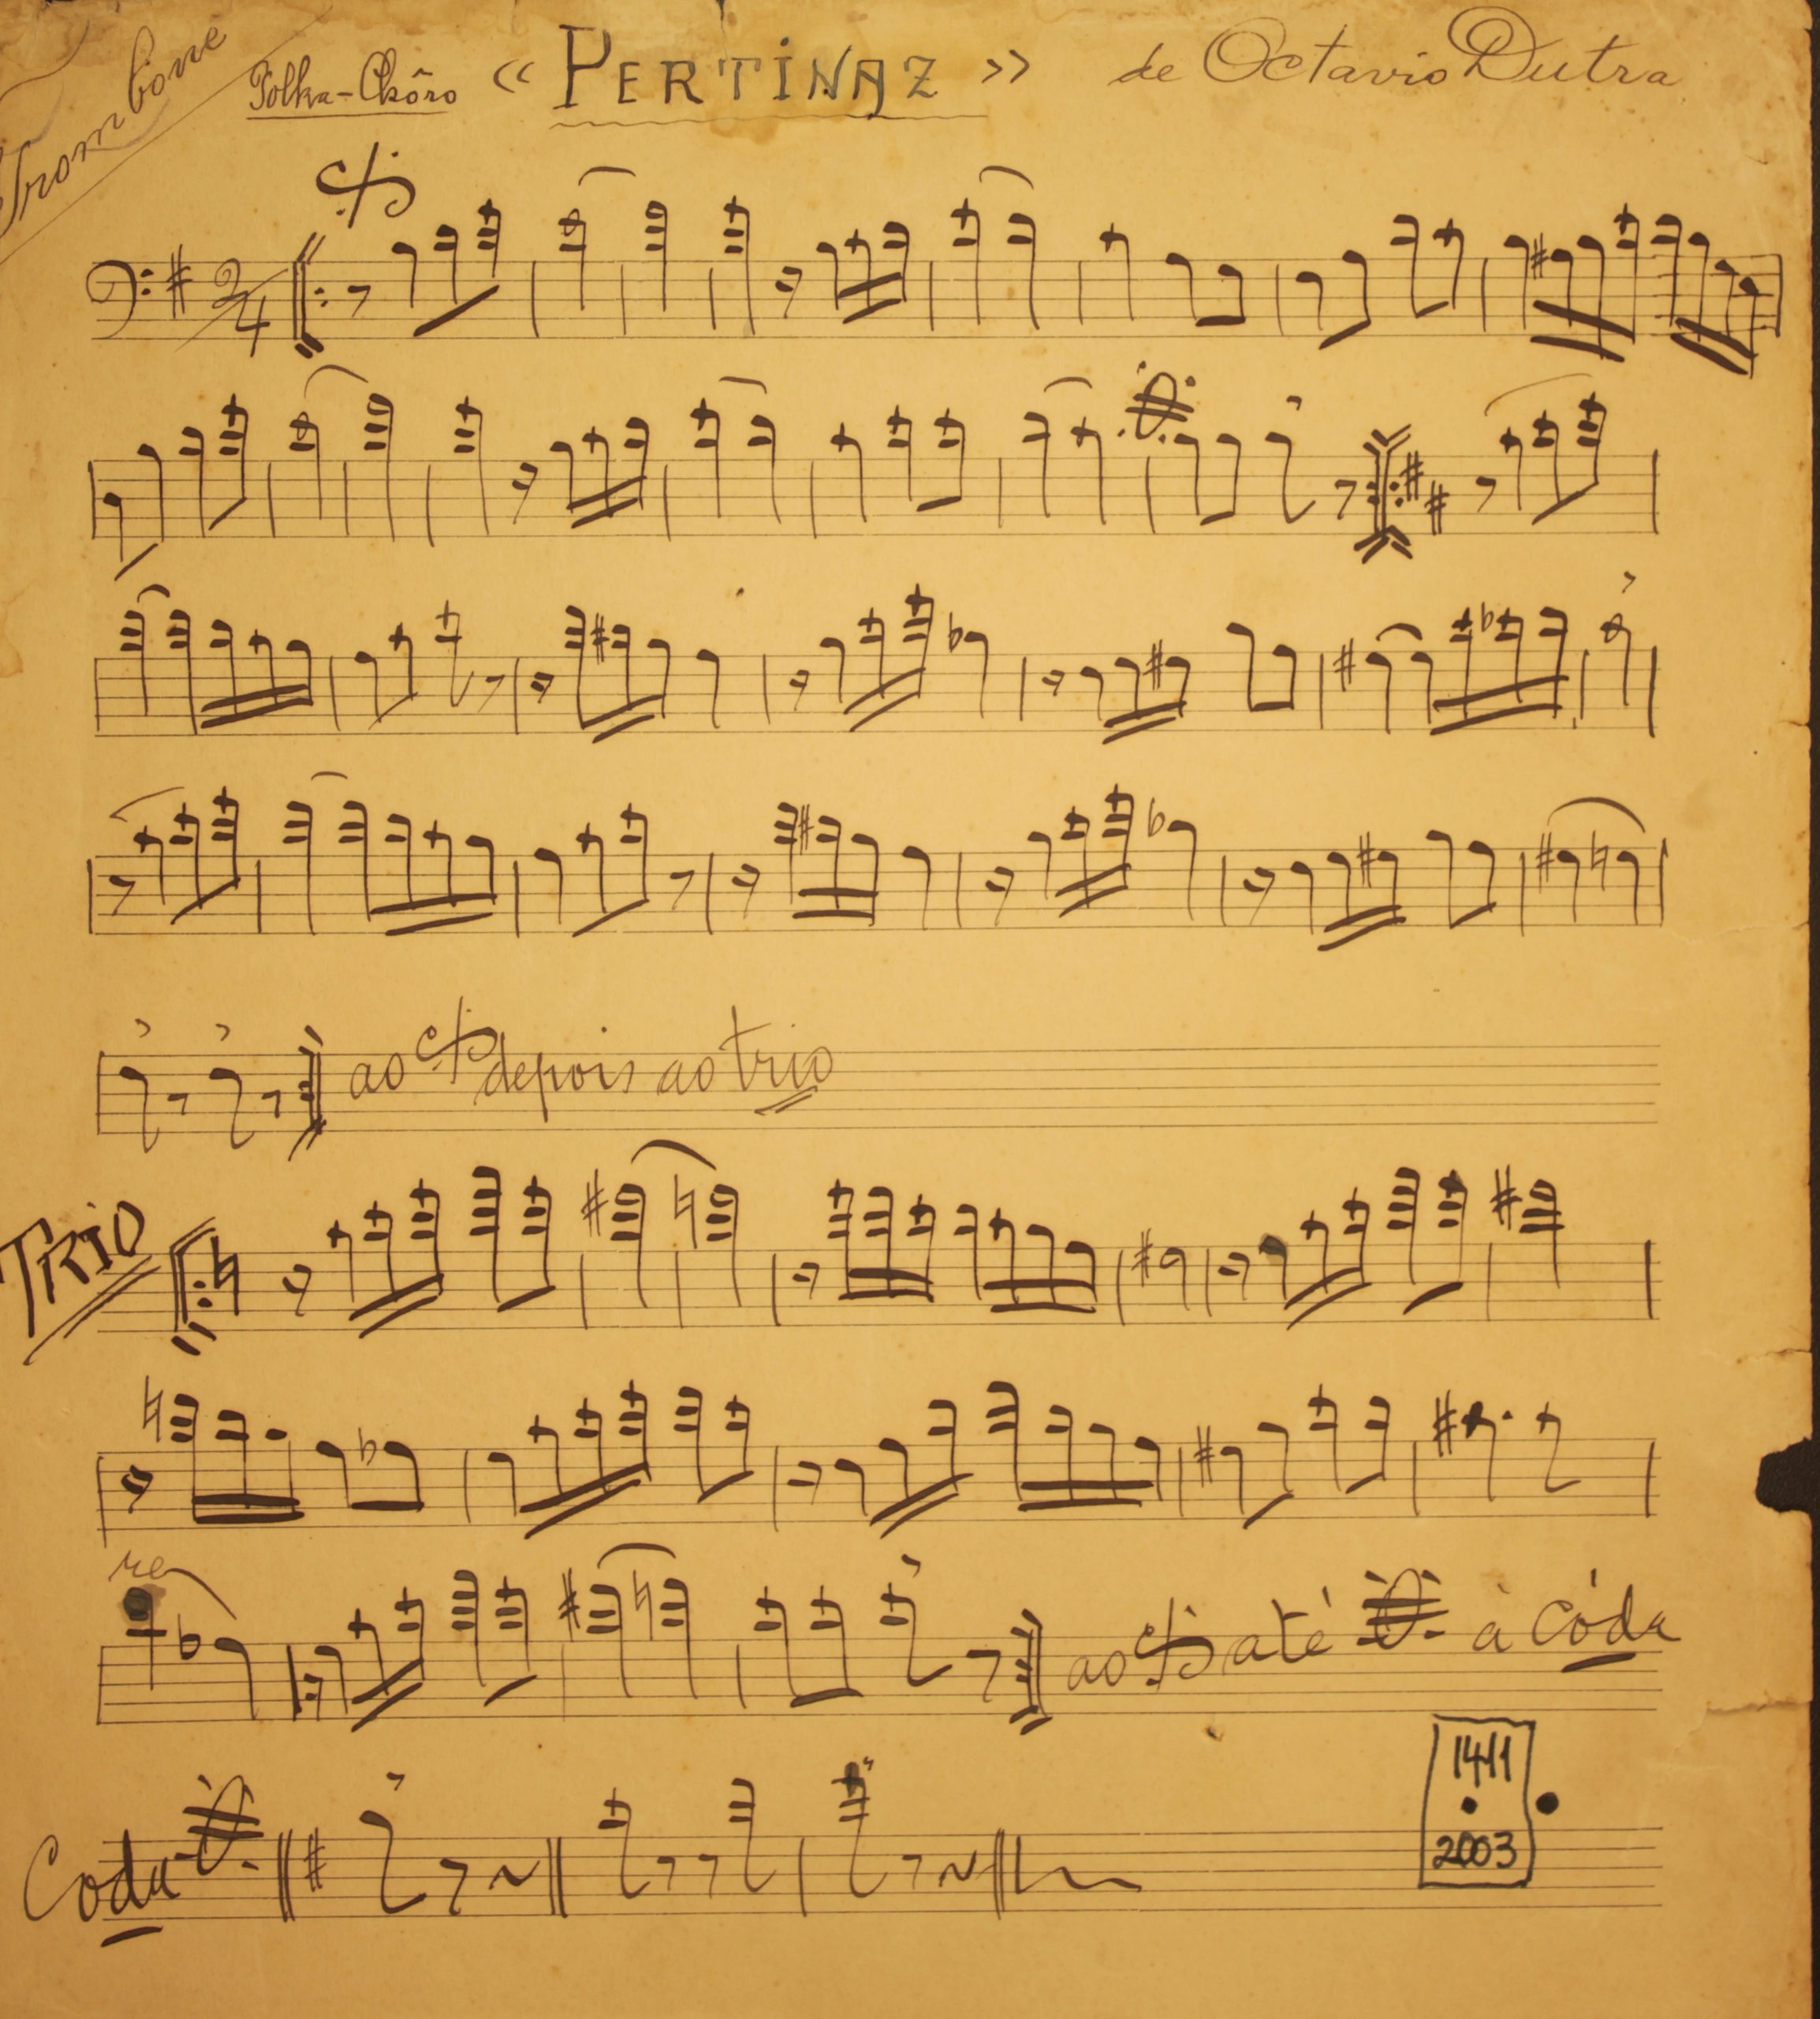 Trombone
Polka-Chôro « PERTINAZ » de Octavio Dutra
2/4
ao depois ao trio
TRIO
re
ao até à códa
1411
2003
Coda